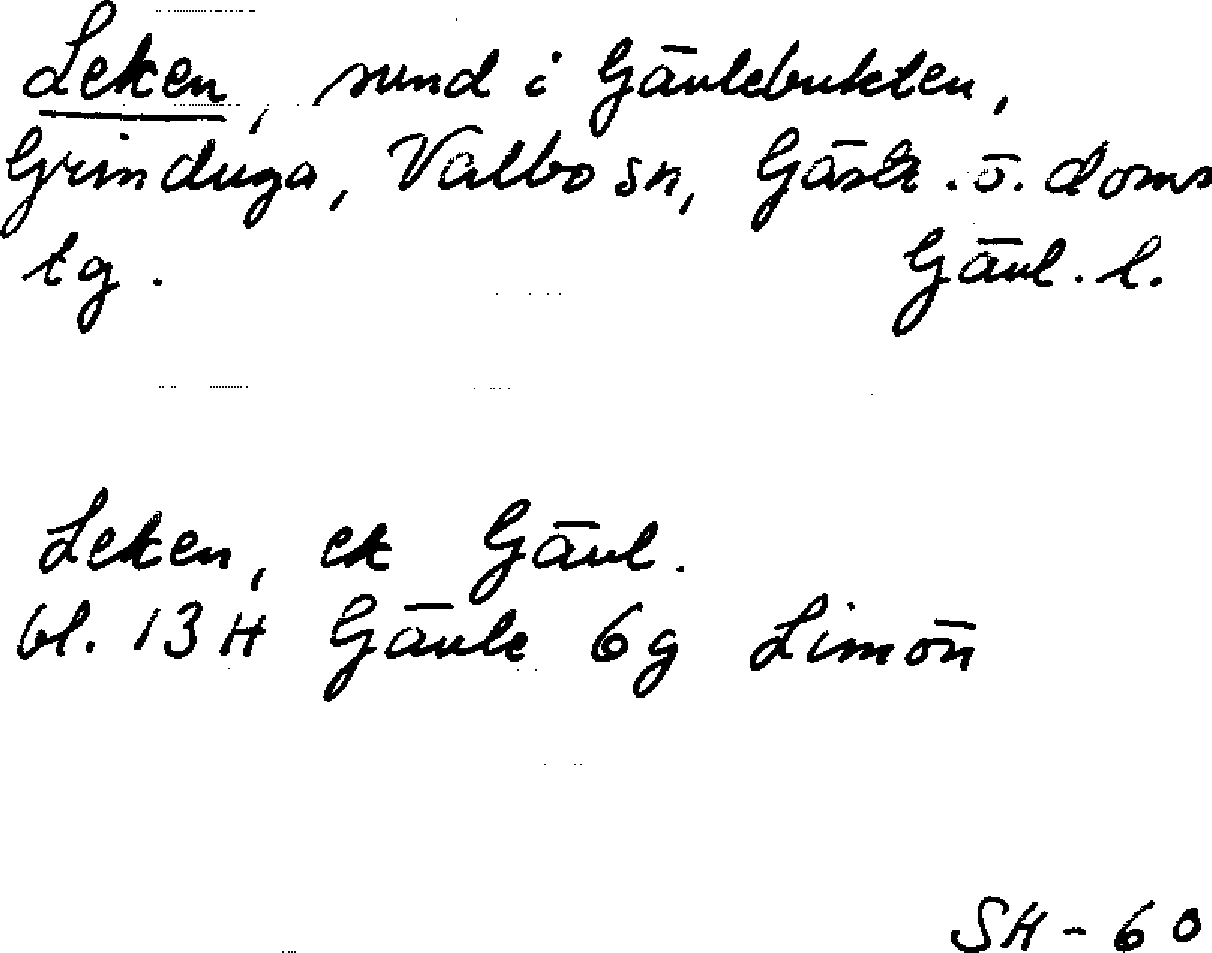 Leken, sund i Gävlebukten,
Grinduga, Valbo sn, Gästr. ö. doms
tg. Gävl. l.
Leken, ek Gävl.
bl. 13 H Gävle 6g Limön
SH - 60